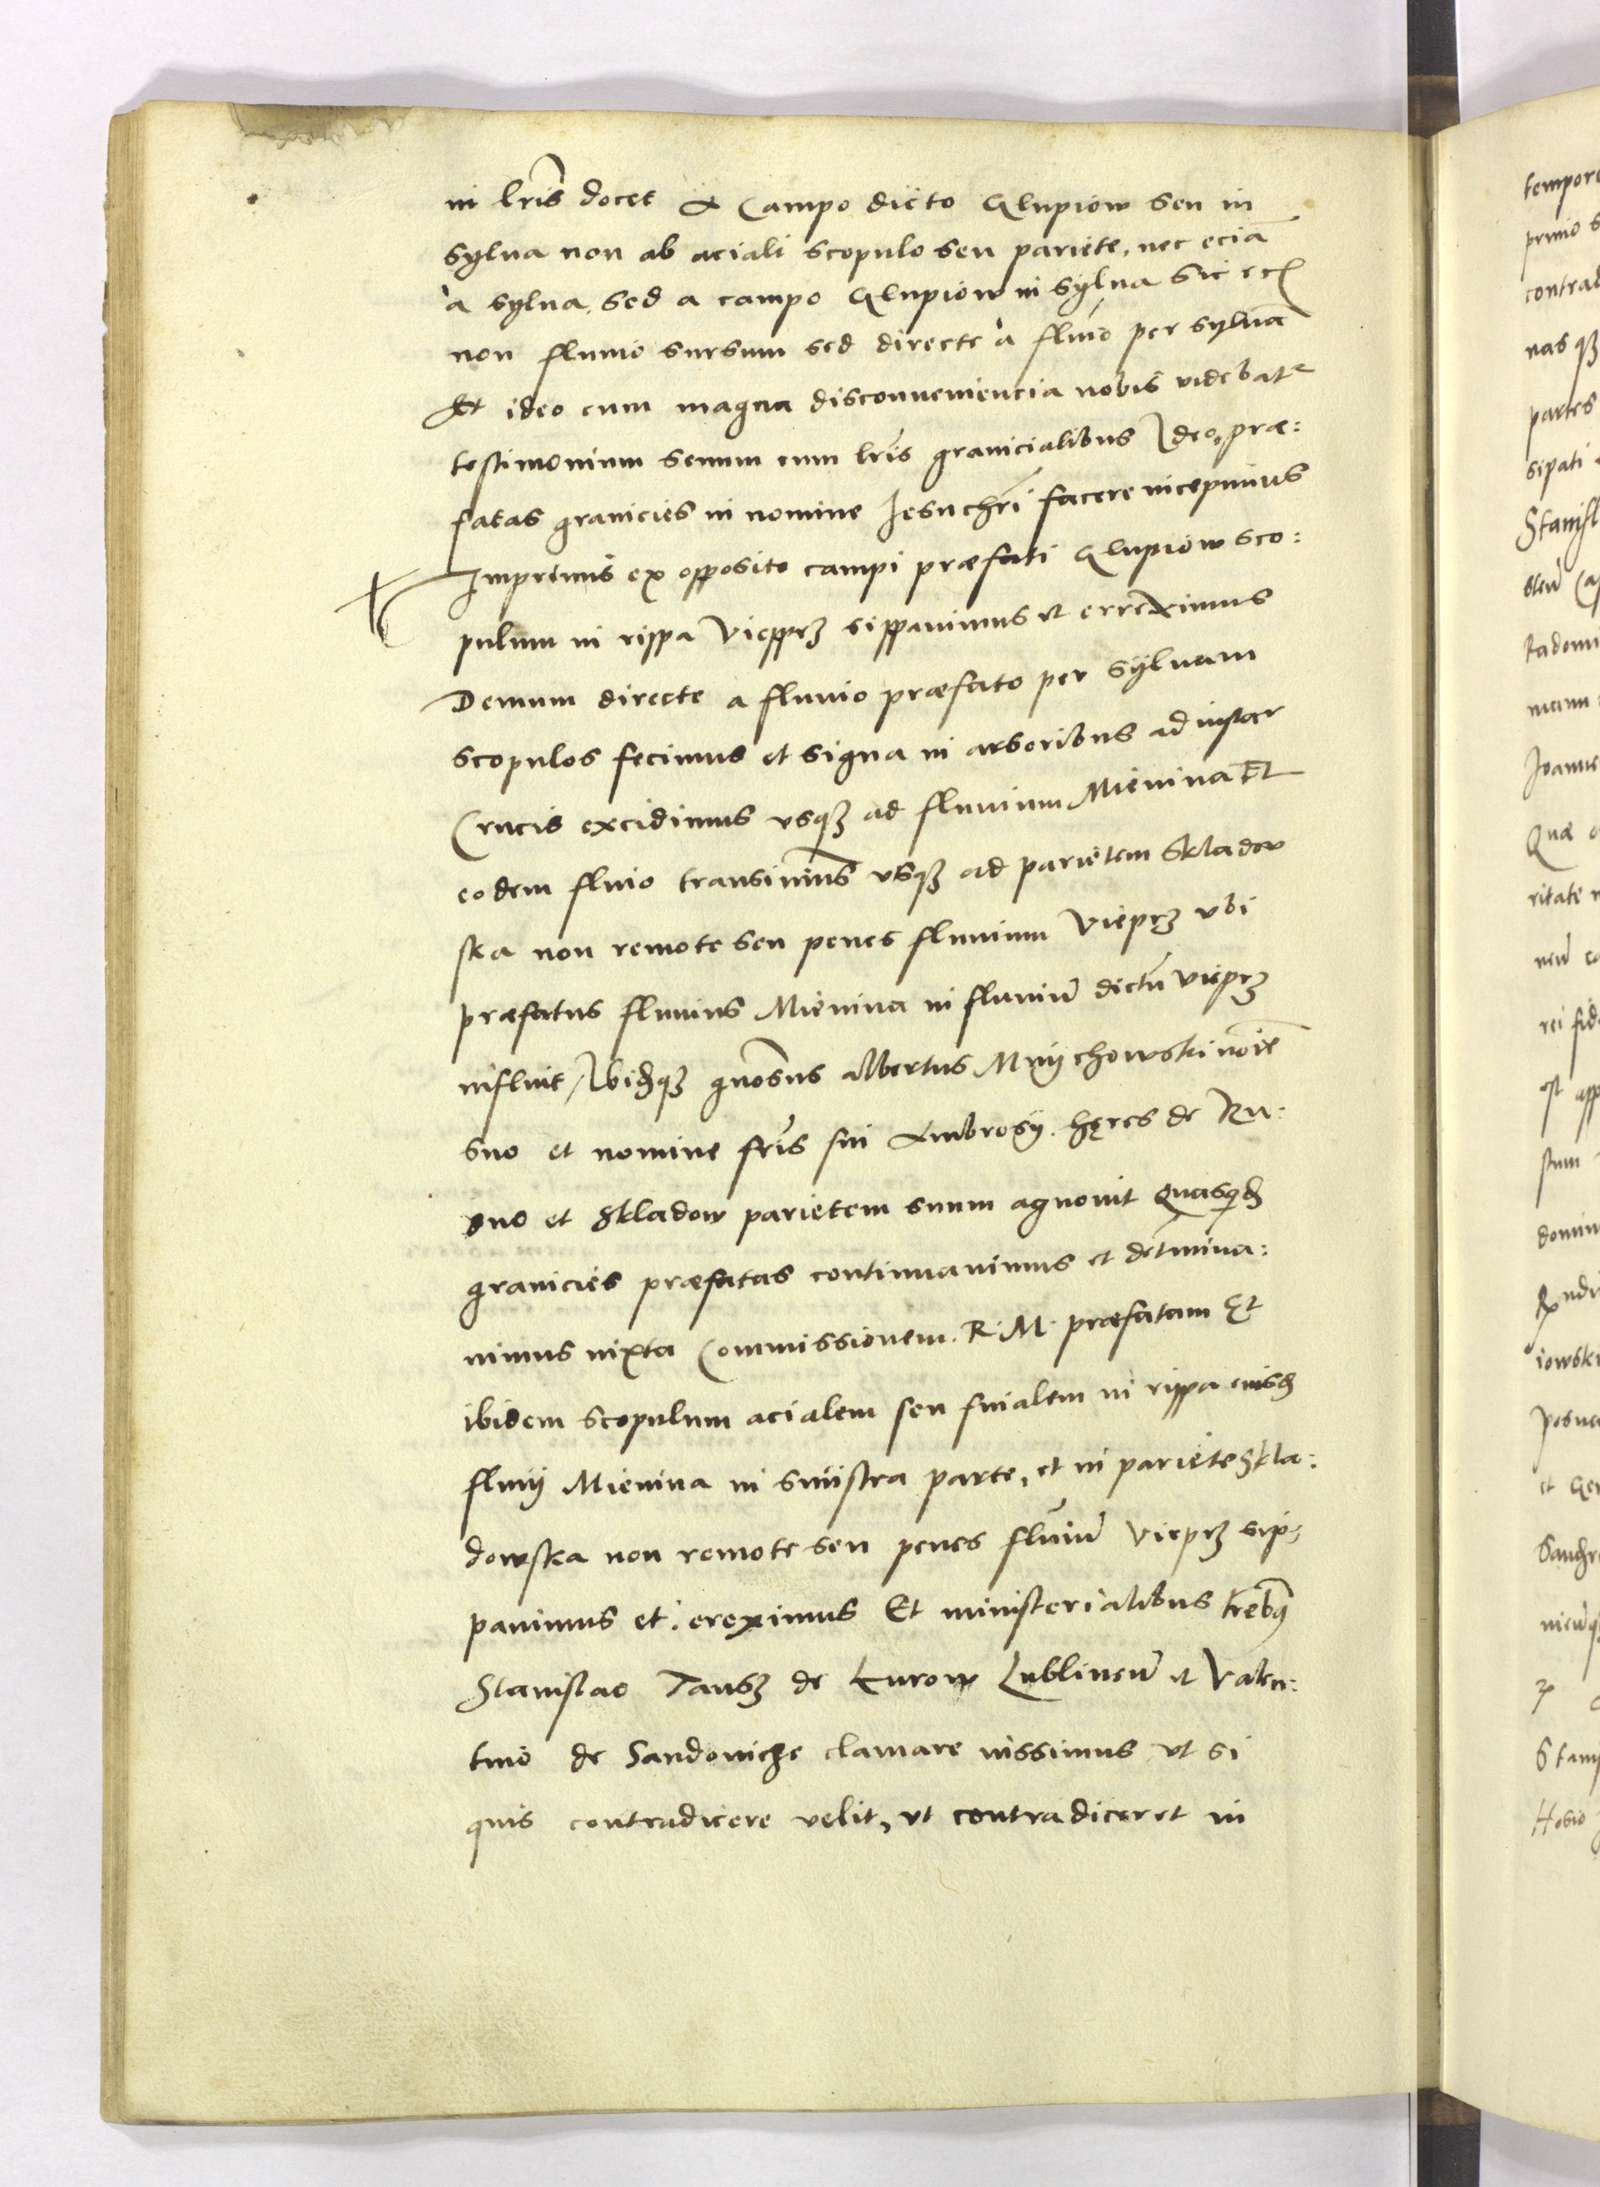 in lr̃is docet A Campo dicto Glupiow seu in
sylua non ab aciali scopulo seu pariete, nec eciã
à sylua, sed a campo Glupiow in sylua sic
non fluuio sursum sed directe à fluio per syluã
Et ideo cum magna disconueniencia nobis videbat
testimonium senum cum lr̃is granicialibus Ideo, præ:
fatas granicies in nomine Iesuchr̃i facere incepimus
Imprimis ex opposito campi præfati Glupiow sco:
pulum in rippa Viepprz sippauimus et erreximus
Demum directe a fluuio præfato per syluam
scopulos fecimus et signa in arboribus ad instar
Crucis excidimus vsqꝫ ad fluuium Mienina Et
eodem fluio transiuimus vsqꝫ ad parietem Skladow
ska non remote seu penes fluuium Vieprz vbi
præfatus fluuius Mienina in fluuiũ dictũ vieprz
influit, Ibidqꝫ gnosus Albertus Mnychowski noĩe
suo et nomine fr̃is sui Ambrosÿ. hęres de Ru:
dno et Skladow parietem suum agnouit Quasqd
granicies præfatas continuauimus et detmina:
uimus iuxta Commissionem. R. M. præfatam Et
ibidem scopulum acialem seu finialem in rippa eiusd
fluuÿ Mienina in sinistra parte, et in pariete Skla:
dowska non remote seu penes fluuiũ vieprz sip:
pauimus et. ereximus Et ministerialibus trebꝫ
Stanislao de Kurow Lublineñ et Valen:
tino de Sandouicze clamare iussimus vt si
quis contradicere velit, vt contradiceret in

tempore
primo
contrad
nas qꝫ
partes
sipati
Stanisl
Radomi
Quæ
ritate
rei fid
est app
stum
domin
iowski
posua
et Ger
Hosio